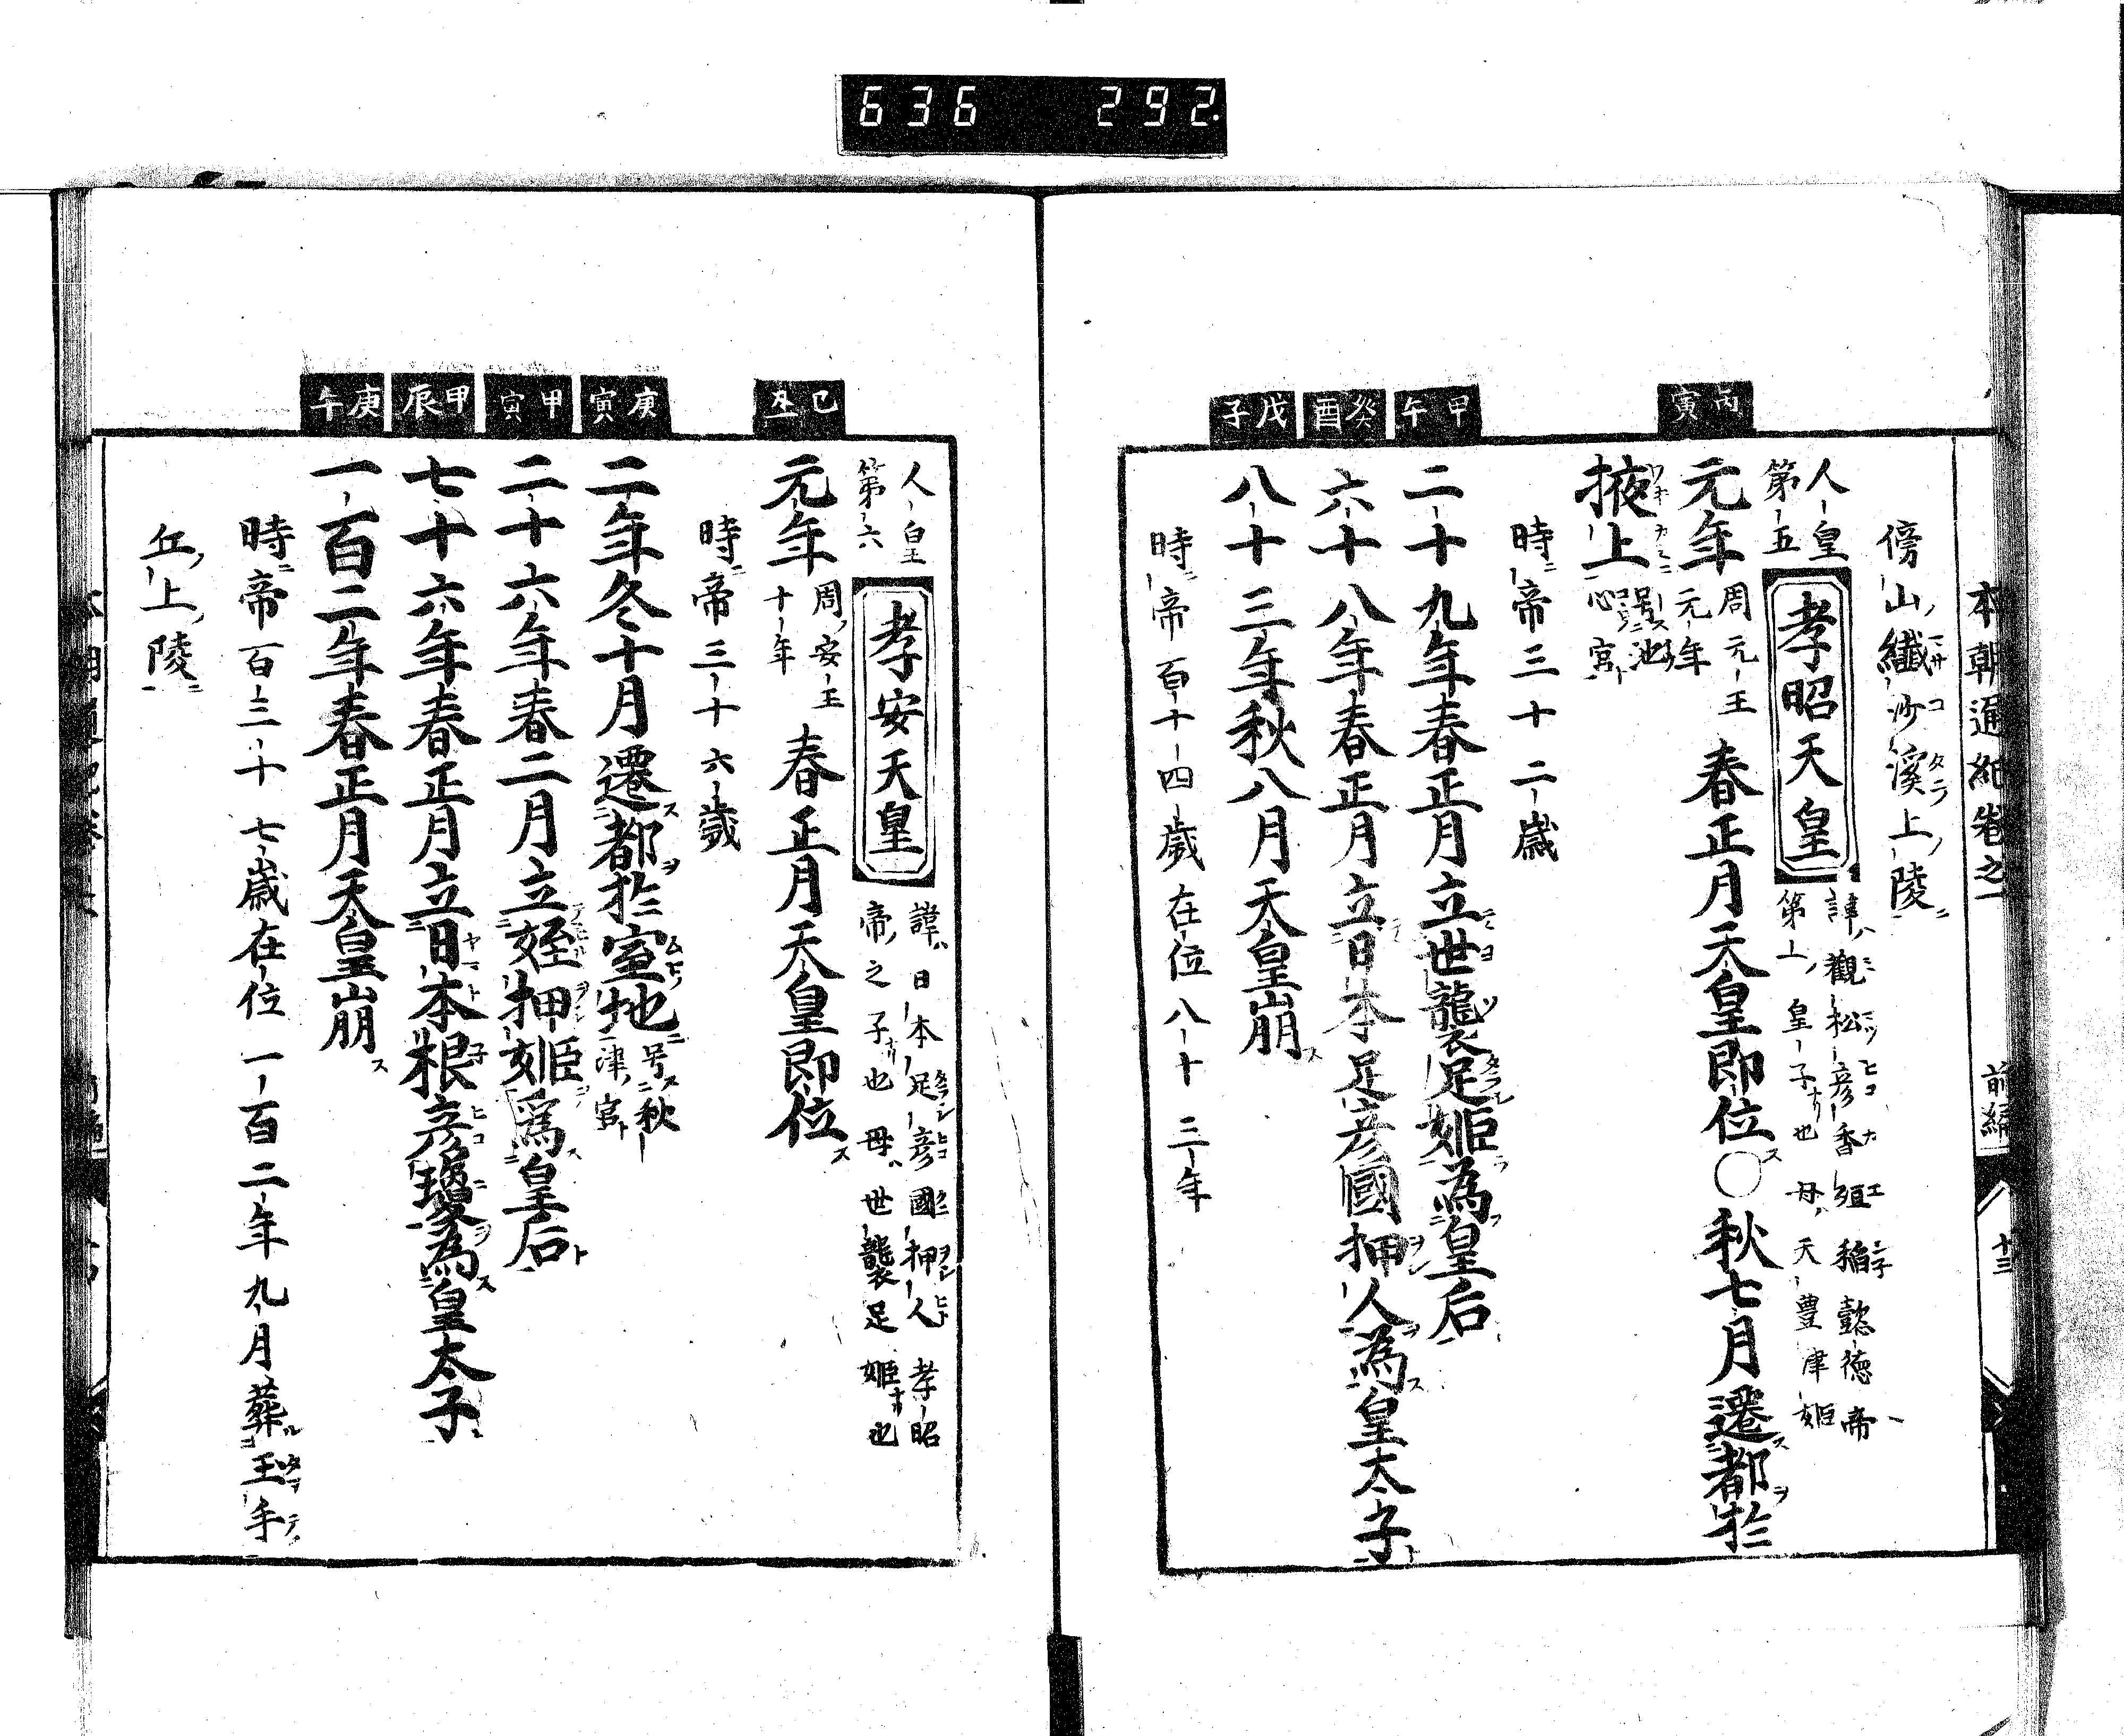 636 292.
本朝通紀卷之一 前編 十三
傍山纖沙溪上陵
人皇第五
孝昭天皇
諱觀松彦香殖稲懿德帝
第一皇子也母天豊津姬
丙寅
元年
周元王
元年
春正月天皇即位○秋七月遷都於
掖上
號池
心宮
時帝三十二歳
甲午
二十九年春正月立世襲足姬為皇后
癸酉
六十八年春正月立日本足彦國押人為皇太子
戊子
八十三年秋八月天皇崩
時帝百十四歳在位八十三年
人皇第六
孝安天皇
諱日本足彦國押人孝昭
帝之子也母世襲足姬也
己丑
元年
周安王
十年
春正月天皇即位
時帝三十六歳
庚寅
二年冬十月遷都於室地
号秋
津宮
甲寅
二十六年春二月立姪押姬爲皇后
甲辰
七十六年春正月立日本根彦瓊為皇太子
庚午
一百二年春正月天皇崩
時帝百三十七歳在位一百二年九月葬玉手
丘上陵